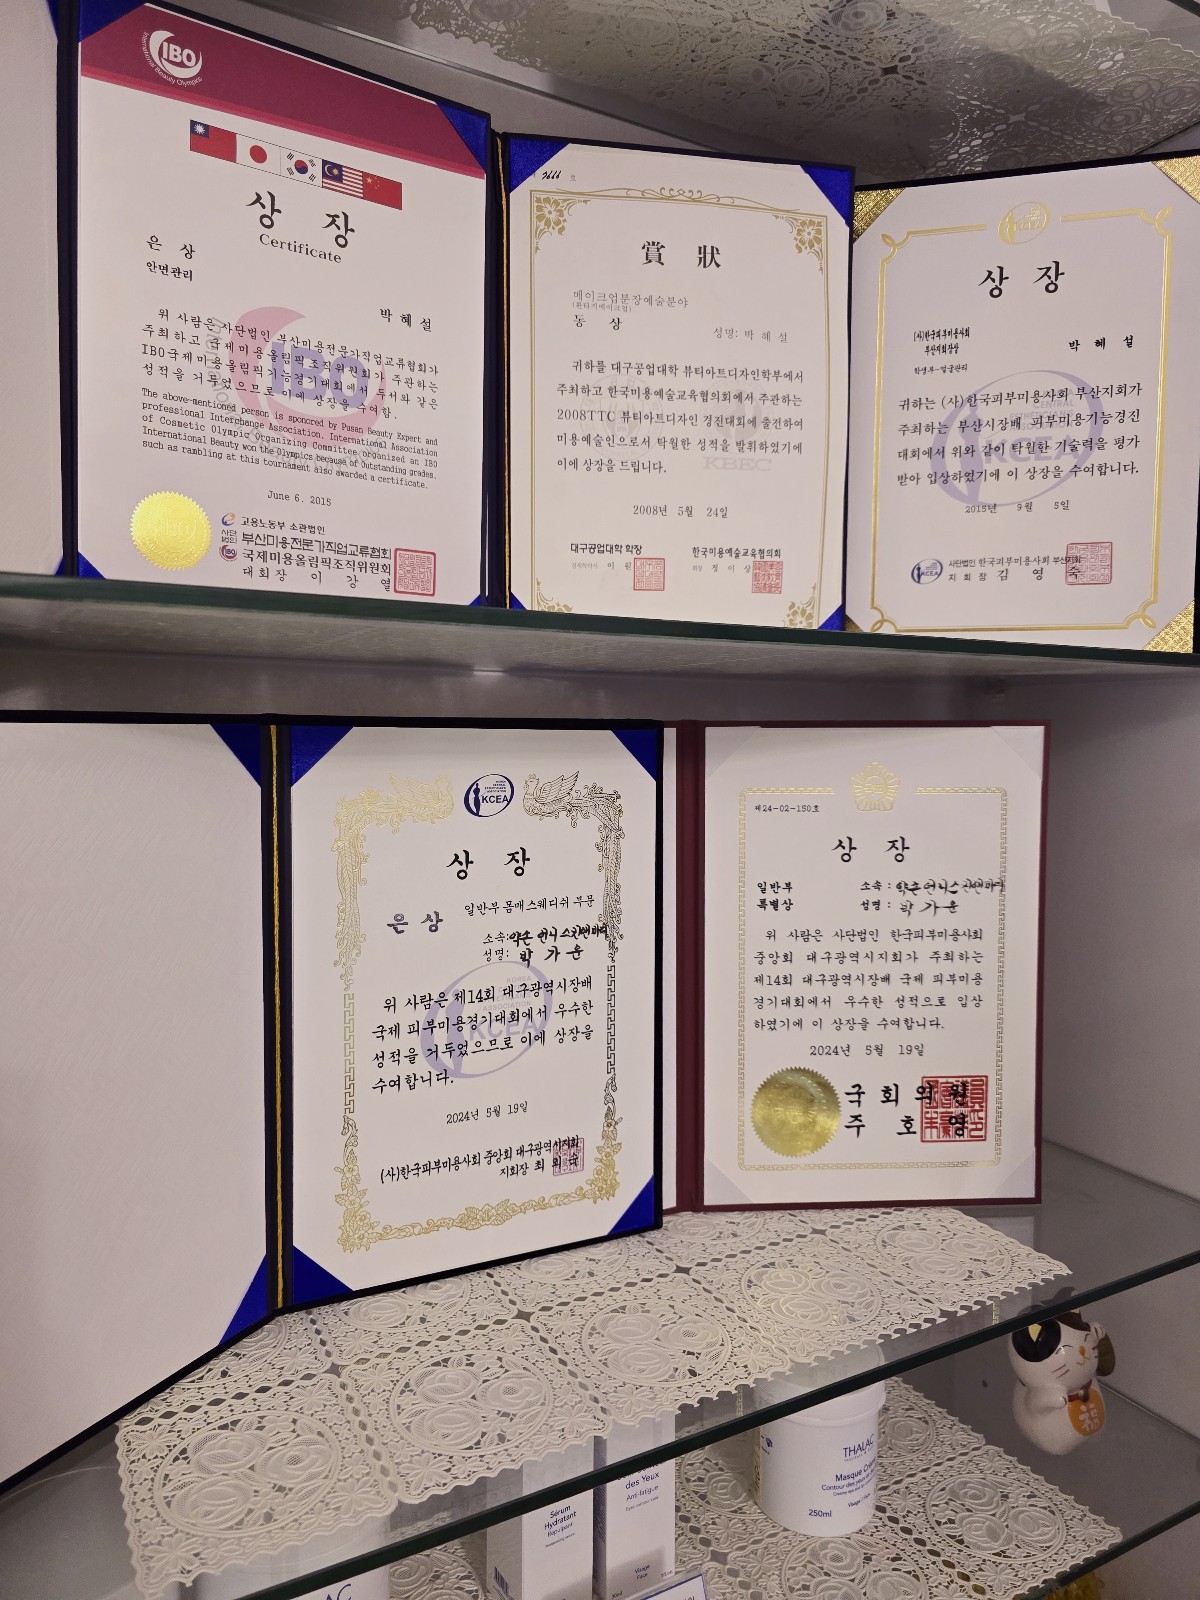 IBO
International Beauty Olympics
상 장
Certificate
은 상
안면관리
박 혜 설
위 사람은 사단법인 부산미용전문가직업교류협회가
주최하고 국제미용올림픽조직위원회가 주관하는
IBO국제미용올림픽기능경기대회에서 두서와 같은
성적을 거두었으므로 이에 상장을 수여함.
The above-mentioned person is sponored by Pusan Beauty Expert and
professional Interchange Association. International Association
of Cosmetic Olympic Organizing Committee organized an IBO
International Beauty won the Olympics because of outstanding grades.
such as rambling at this tournament also awarded a certificate.
June 6. 2015
고용노동부 소관법인
사단법인 부산미용전문가직업교류협회
IBO 국제미용올림픽조직위원회
대회장 이 강 열
3666 호
賞 狀
메이크업분장예술분야
(판타지메이크업)
동 상
성명: 박 혜 설
귀하를 대구공업대학 뷰티아트디자인학부에서
주최하고 한국미용예술교육협의회에서 주관하는
2008TTC 뷰티아트디자인 경진대회에 출전하여
미용예술인으로서 탁월한 성적을 발휘하였기에
이에 상장을 드립니다.
KBEC
2008년 5월 24일
대구공업대학 학장
이 원
한국미용예술교육협의회
회장 정 이 상
KCEA
상 장
(사)한국피부미용사회
부산지회장상
학생부-얼굴관리
박 혜 설
귀하는 (사)한국피부미용사회 부산지회가
주최하는 부산시장배 피부미용기능경진
대회에서 위와 같이 탁월한 기술력을 평가
받아 입상하였기에 이 상장을 수여합니다.
KCEA
2015년 9월 5일
KCEA 사단법인 한국피부미용사회 부산지회
지 회 장 김 영 숙
KCEA
상 장
은 상
일반부 몸매스웨디쉬 부문
소속:약손 언니 스킨앤바디
성명: 박 가 윤
위 사람은 제14회 대구광역시장배
국제 피부미용경기대회에서 우수한
성적을 거두었으므로 이에 상장을
수여합니다.
KCEA
2024년 5월 19일
(사)한국피부미용사회 중앙회 대구광역시지회
지회장 최 의 숙
제24-02-150호
상 장
일반부
특별상
소속 : 약손언니스킨앤바디
성명 : 박 가 윤
위 사람은 사단법인 한국피부미용사회
중앙회 대구광역시지회가 주최하는
제14회 대구광역시장배 국제 피부미용
경기대회에서 우수한 성적으로 입상
하였기에 이 상장을 수여합니다.
2024년 5월 19일
국 회 의 원
주 호 영
福
THALAC
Masque Crème
Contour des yeux
250ml
des Yeux
Anti-fatigue
Visage
Face
Sérum
Hydratant
Repulpant